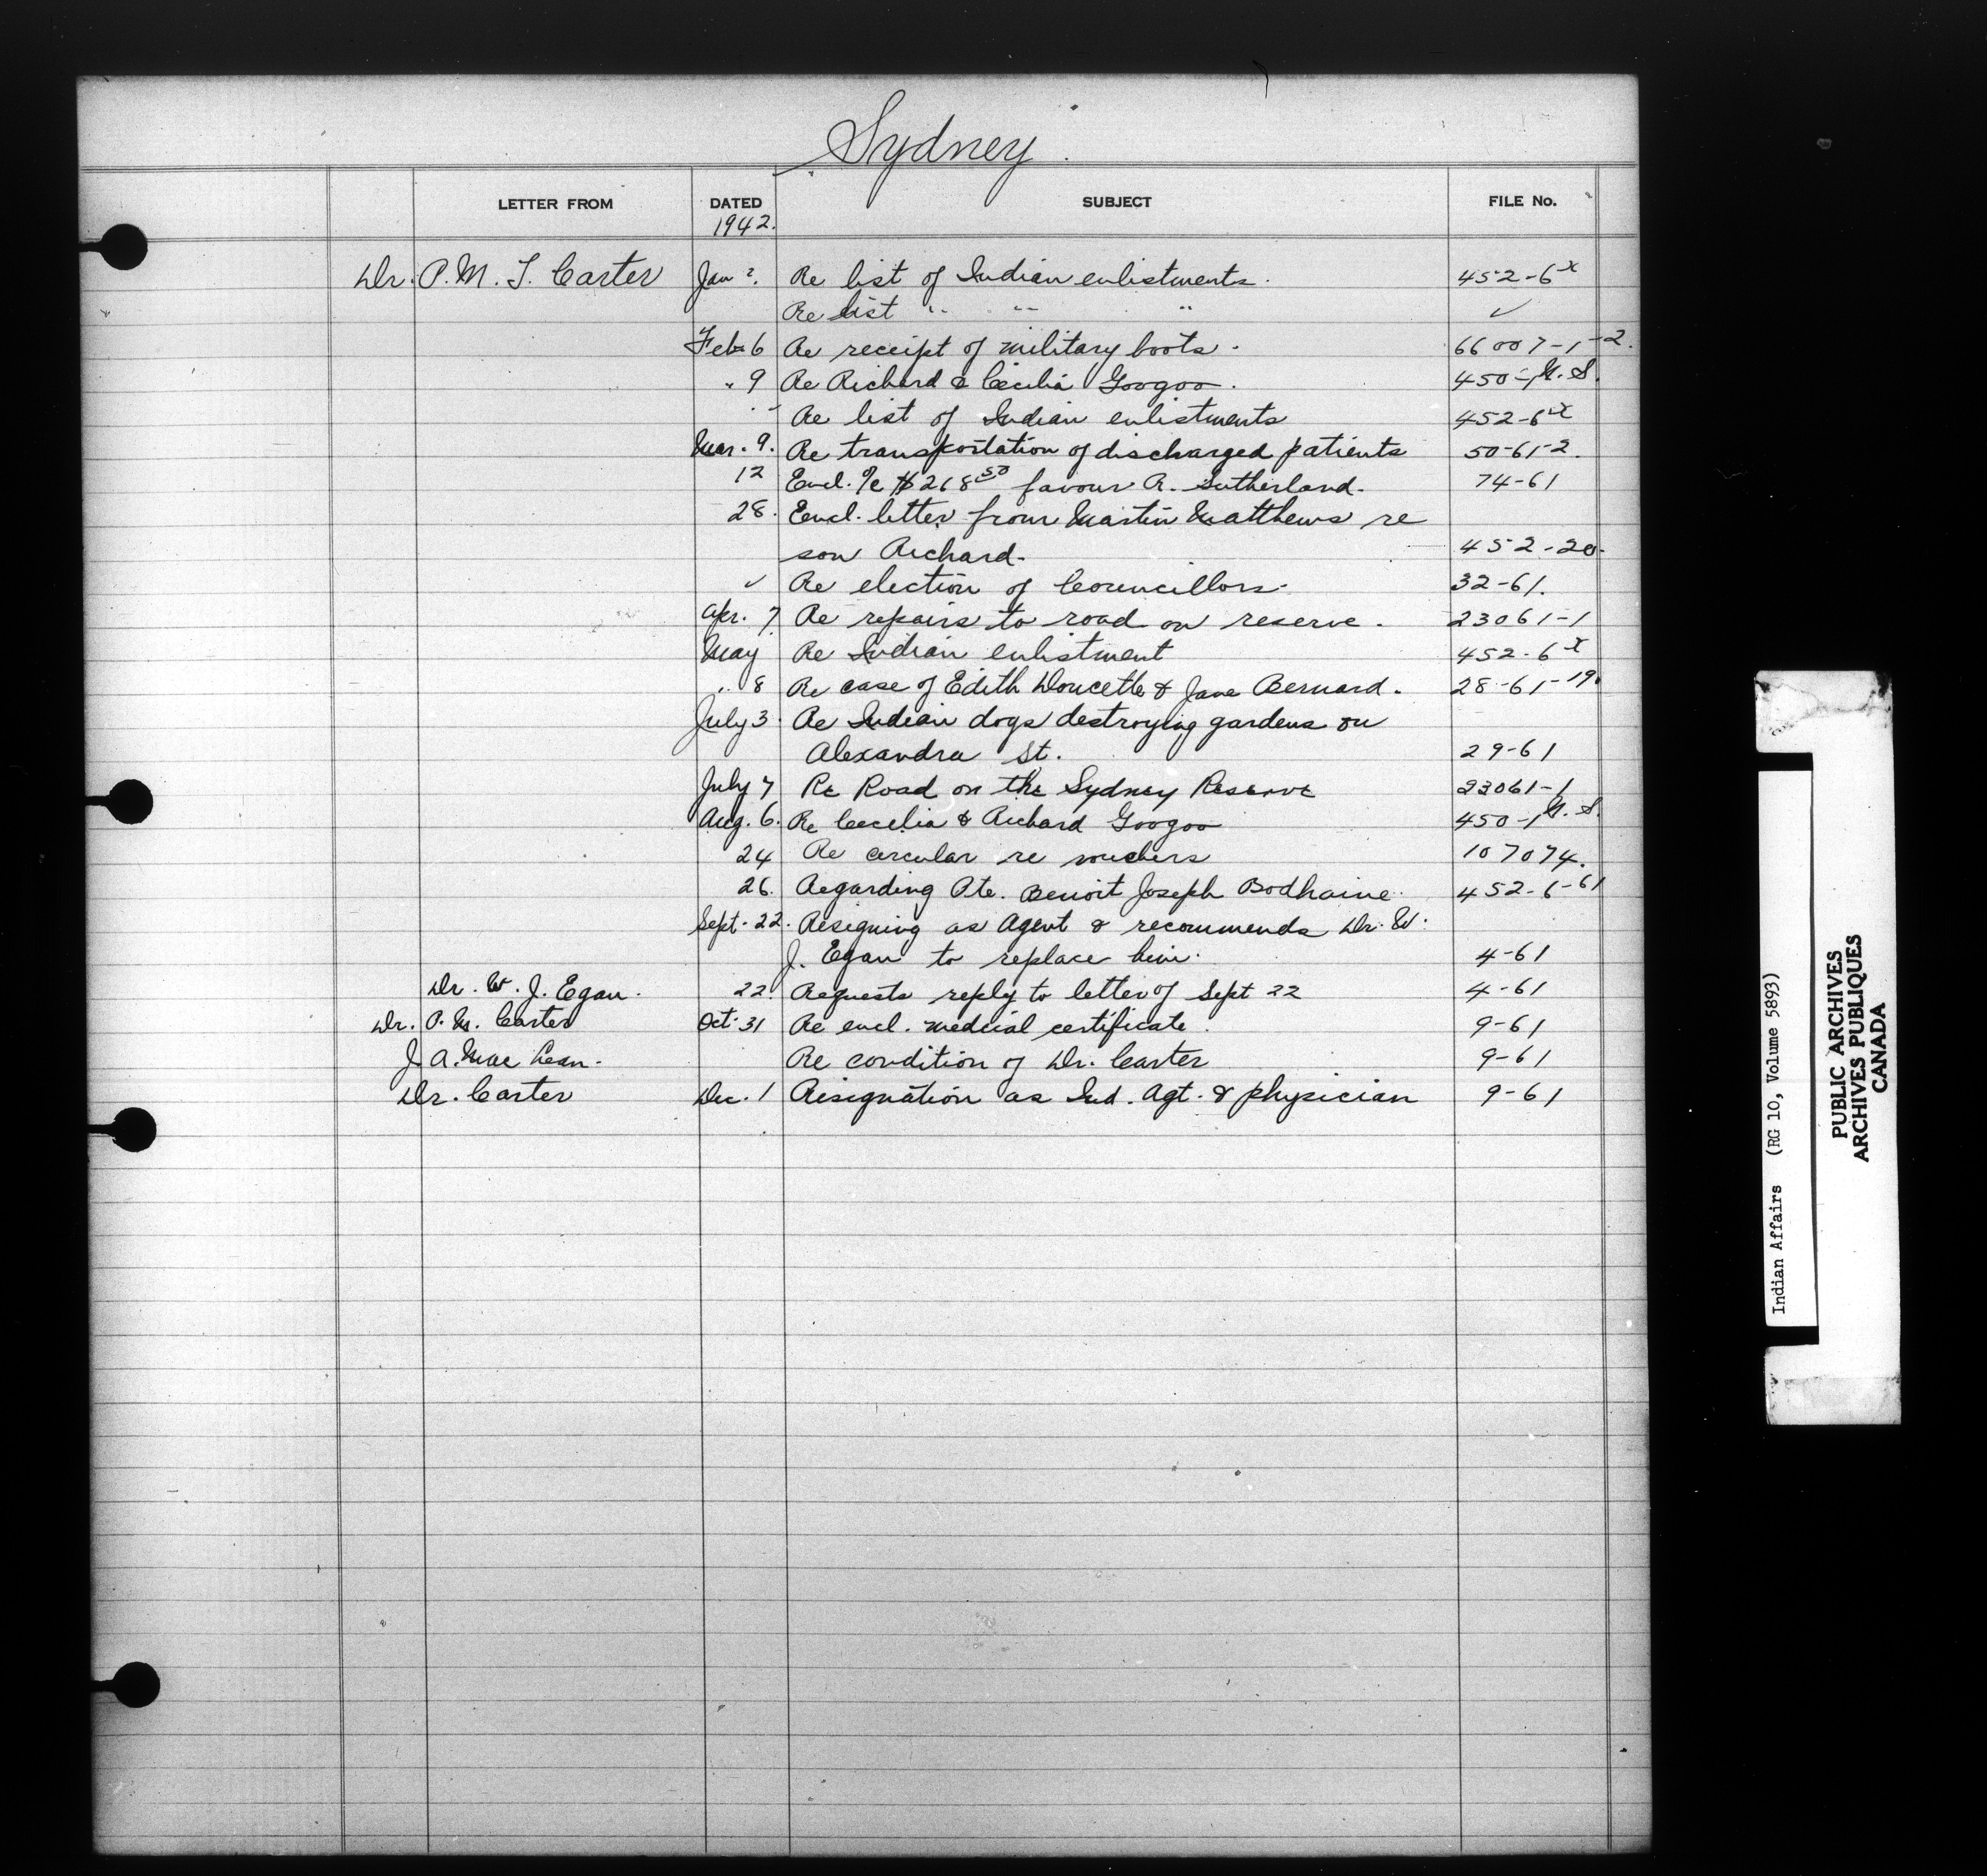 Sydney.
LETTER FROM DATED SUBJECT FILE No.
1942.
Dr. P. M. T. Carter Jan 2. Re list of Indian enlistments. 452-6x
Re list " " " ✓
Feb 6 Re receipt of military boots. 66007-1-2.
" 9 Re Richard & Cecilia Googoo. 450-1 N.S.
" Re list of Indian enlistments 452-6x
Mar. 9. Re transportation of discharged patients 50-61-2.
12 Encl. % $268 50 favour R. Sutherland. 74-61
28. Encl. letter from Martin Matthews re
son Richard. 452-20.
✓ Re election of Councillors. 32-61.
Apr. 7. Re repairs to road on reserve. 23061-1
May Re Indian enlistment 452-6x
" 8 Re case of Edith Doucette & Jane Bernard. 28-61-19.
July 3. Re Indian dogs destroying gardens on
Alexandra St. 29-61
July 7 Re Road on the Sydney Reserve 23061-1
Aug. 6. Re Cecelia & Richard Googoo 450-1 N.S.
24 Re circular re vouchers 107074.
26. Regarding Pte. Benoit Joseph Bodhaine. 452-6-61
Sept. 22. Resigning as Agent & recommends Dr. W.
J. Egan to replace him. 4-61
Dr. W. J. Egan. 22. Requests reply to letter of Sept 22 4-61
Dr. P. M. Carter Oct. 31 Re encl. medical certificate. 9-61
J. A. MacLean. Re condition of Dr. Carter 9-61
Dr. Carter Dec. 1 Resignation as Ind. Agt. & physician 9-61
Indian Affairs (RG 10, Volume 5893)
PUBLIC ARCHIVES
ARCHIVES PUBLIQUES
CANADA